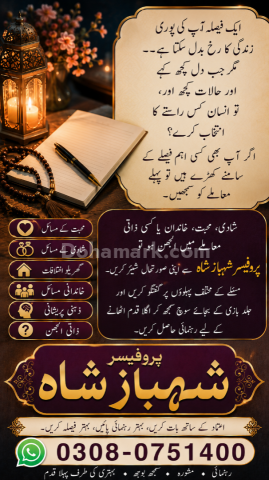 ایک فیصلہ آپ کی پوری
زندگی کا رخ بدل سکتا ہے۔۔
مگر جب دل کچھ کہے
اور حالات کچھ اور،
تو انسان کس راستے کا
انتخاب کرے؟
اگر آپ بھی کسی اہم فیصلے کے
سامنے کھڑے ہیں تو پہلے
معاملے کو سمجھیں۔
محبت کے مسائل
شادی کے مسائل
گھریلو اختلافات
خاندانی مسائل
ذہنی پریشانی
ذاتی الجھن
شادی، محبت، خاندان یا کسی ذاتی
معاملے میں الجھن ہو تو
پروفیسر شہباز شاہ سے اپنی صورتحال شیئر کریں۔
مسئلے کے مختلف پہلوؤں پر گفتگو کریں اور
جلد بازی کے بجائے سوچ سمجھ کر اگلا قدم اٹھانے
کے لیے رہنمائی حاصل کریں۔
Dohamark.com
پروفیسر
شہباز شاہ
اعتماد کے ساتھ بات کریں، بہتر رہنمائی پائیں، بہتر فیصلہ کریں۔
0308-0751400
رہنمائی • مشورہ • سمجھ بوجھ • بہتری کی طرف پہلا قدم